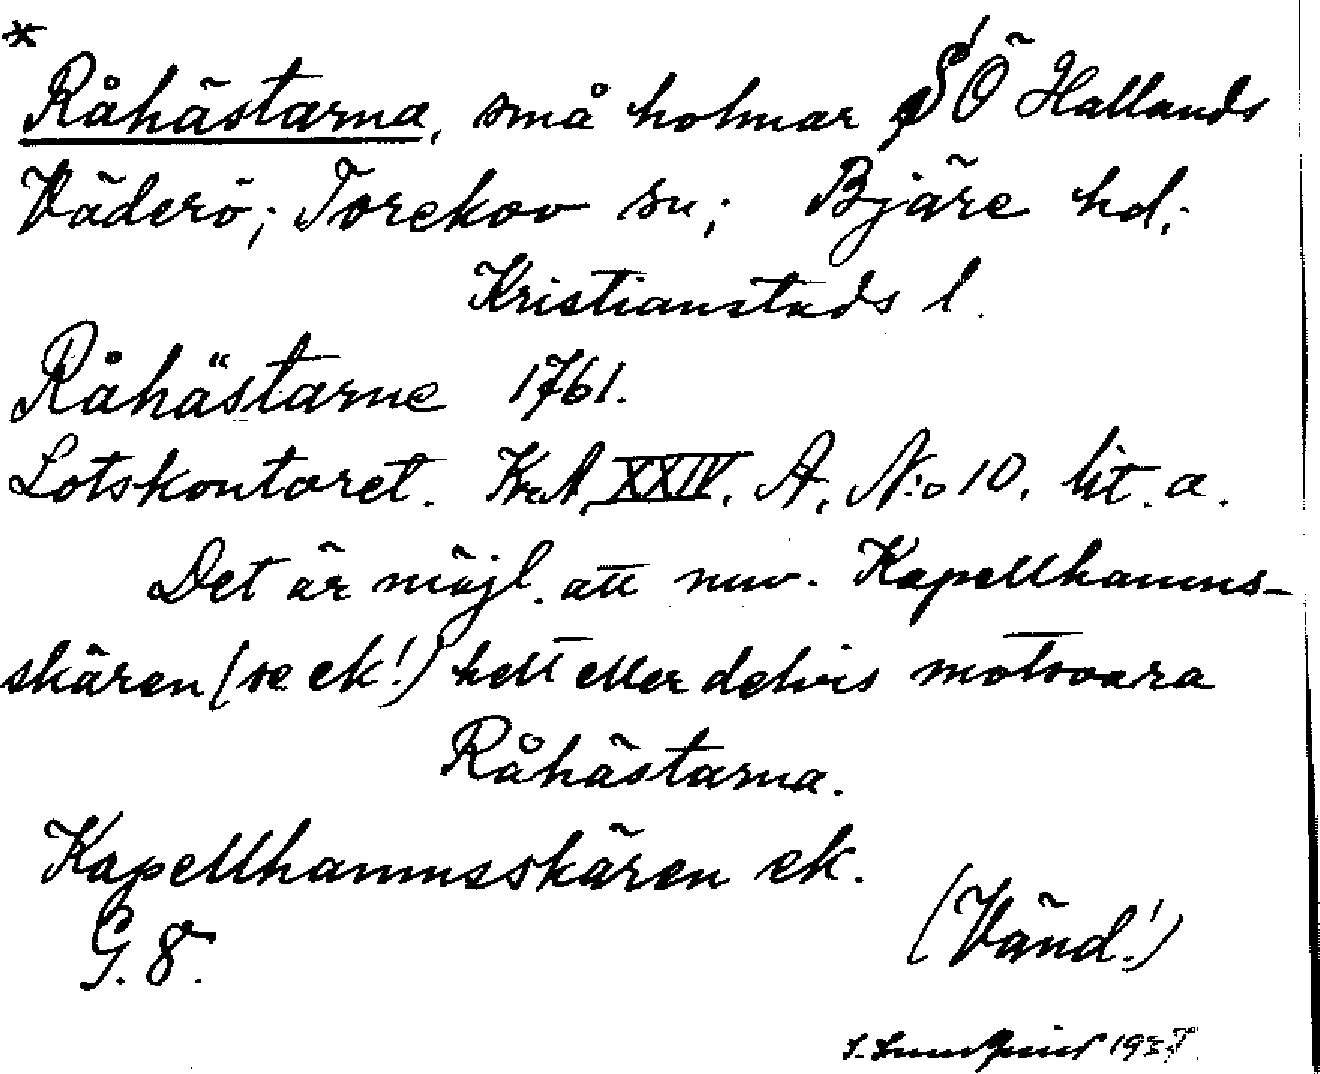 *
Råhästarna, små holmar SÖ Hallands
Väderö; Torekov sn; Bjäre hd;
Kristianstads l.
Råhästarne 1761.
Lotskontoret. Kr.A. XXIV. A. N:o 10. lit. a.
Det är möjl. att nuv. Kapellhamns-
skären (se ek!) helt eller delvis motsvara
Råhästarna.
Kapellhamnsskären ek.
G. 8.
(Vänd!)